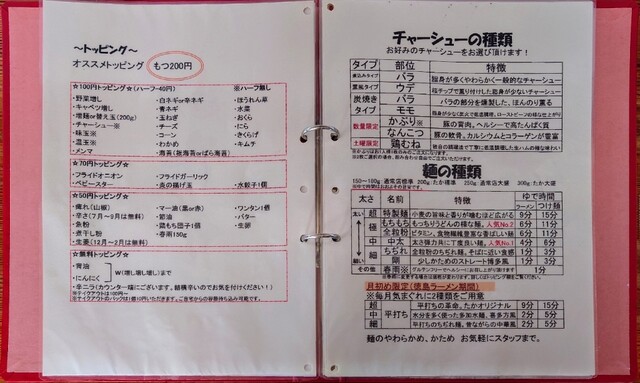 ～トッピング～
オススメトッピング もつ200円
☆100円トッピング☆(ハーフ-40円) ※ハーフ無し
・野菜増し ・白ネギor辛ネギ ・ほうれん草
・キャベツ増し ・青ネギ ・水菜
・増麺or替え玉(200g) ・玉ねぎ ・おくら
・チャーシュー※ ・チーズ ・にら
・味玉※ ・コーン ・きくらげ
・温玉※ ・わかめ ・キムチ
・メンマ ・海苔(板海苔orばら海苔)
☆70円トッピング☆
・フライドオニオン ・フライドガーリック
・ベビースター ・炎の揚げ玉 ・水餃子1個
☆50円トッピング☆
・痺れ(山椒) ・マー油(黒or赤) ・ワンタン1個
・辛さ(7月～9月は無料) ・節油 ・バター
・魚粉 ・鶏もち団子1個 ・生卵
・煮干し粉 ・春雨150g
・生姜(12月～2月は無料)
☆無料トッピング☆
・背油
・にんにく W(増し増し増し)まで
・辛ニラ(カウンター端にございます。結構辛いのでお気を付けください!)
※テイクアウトは100円～
チャーシューの種類
お好みのチャーシューをお選び頂けます!
タイプ 部位 特徴
煮込みタイプ バラ 脂身が多くやわらかく一般的なチャーシュー
燻製タイプ ウデ 桜チップで薫り付けした脂分が少ないタイプ
炭焼き バラ バラの部分を燻製した、ほんのり薫る
タイプ モモ
数量限定 かぶり※ 豚の背肉。ヘルシーで高たんぱく質
なんこつ 豚の軟骨。カルシウムとコラーゲンが豊富
土曜限定 鶏むね
麺の種類
150～100g:通常店標準 200g:たか標準 250g:通常店大盛 300g:たか大盛
太さ 名前 特徴 ゆで時間
ラーメン つけ麺
太い 超 特製麺 小麦の旨味と香りが噛むほど広がる 9分 15分
極 もちもち もっちりうどんの様な麺。人気No.2 6分 11分
極 全粒粉 ビタミン、食物繊維豊富な香ばしい麺 6分 11分
中 中太 太さ弾力共に丁度良い麺。人気No.1 4分 6分
細 ちぢれ 全粒粉のちぢれ麺。そばに近い食感 1分
細い 細 少しかためのストレート博多風 1分 3分
その他 春雨※ グルテンフリーでヘルシーにお召し上がり頂けます 1分
月初め限定(徳島ラーメン期間)
※毎月気まぐれに2種類をご用意
超 平打ち 平打ちの革命。たかオリジナル 9分 15分
中 水分を多く使った多加水麺、喜多方風 2分 5分
細 平打ちのちぢれ麺。昔ながらの中華風 2分 5分
麺のやわらかめ、かため お気軽にスタッフまで。